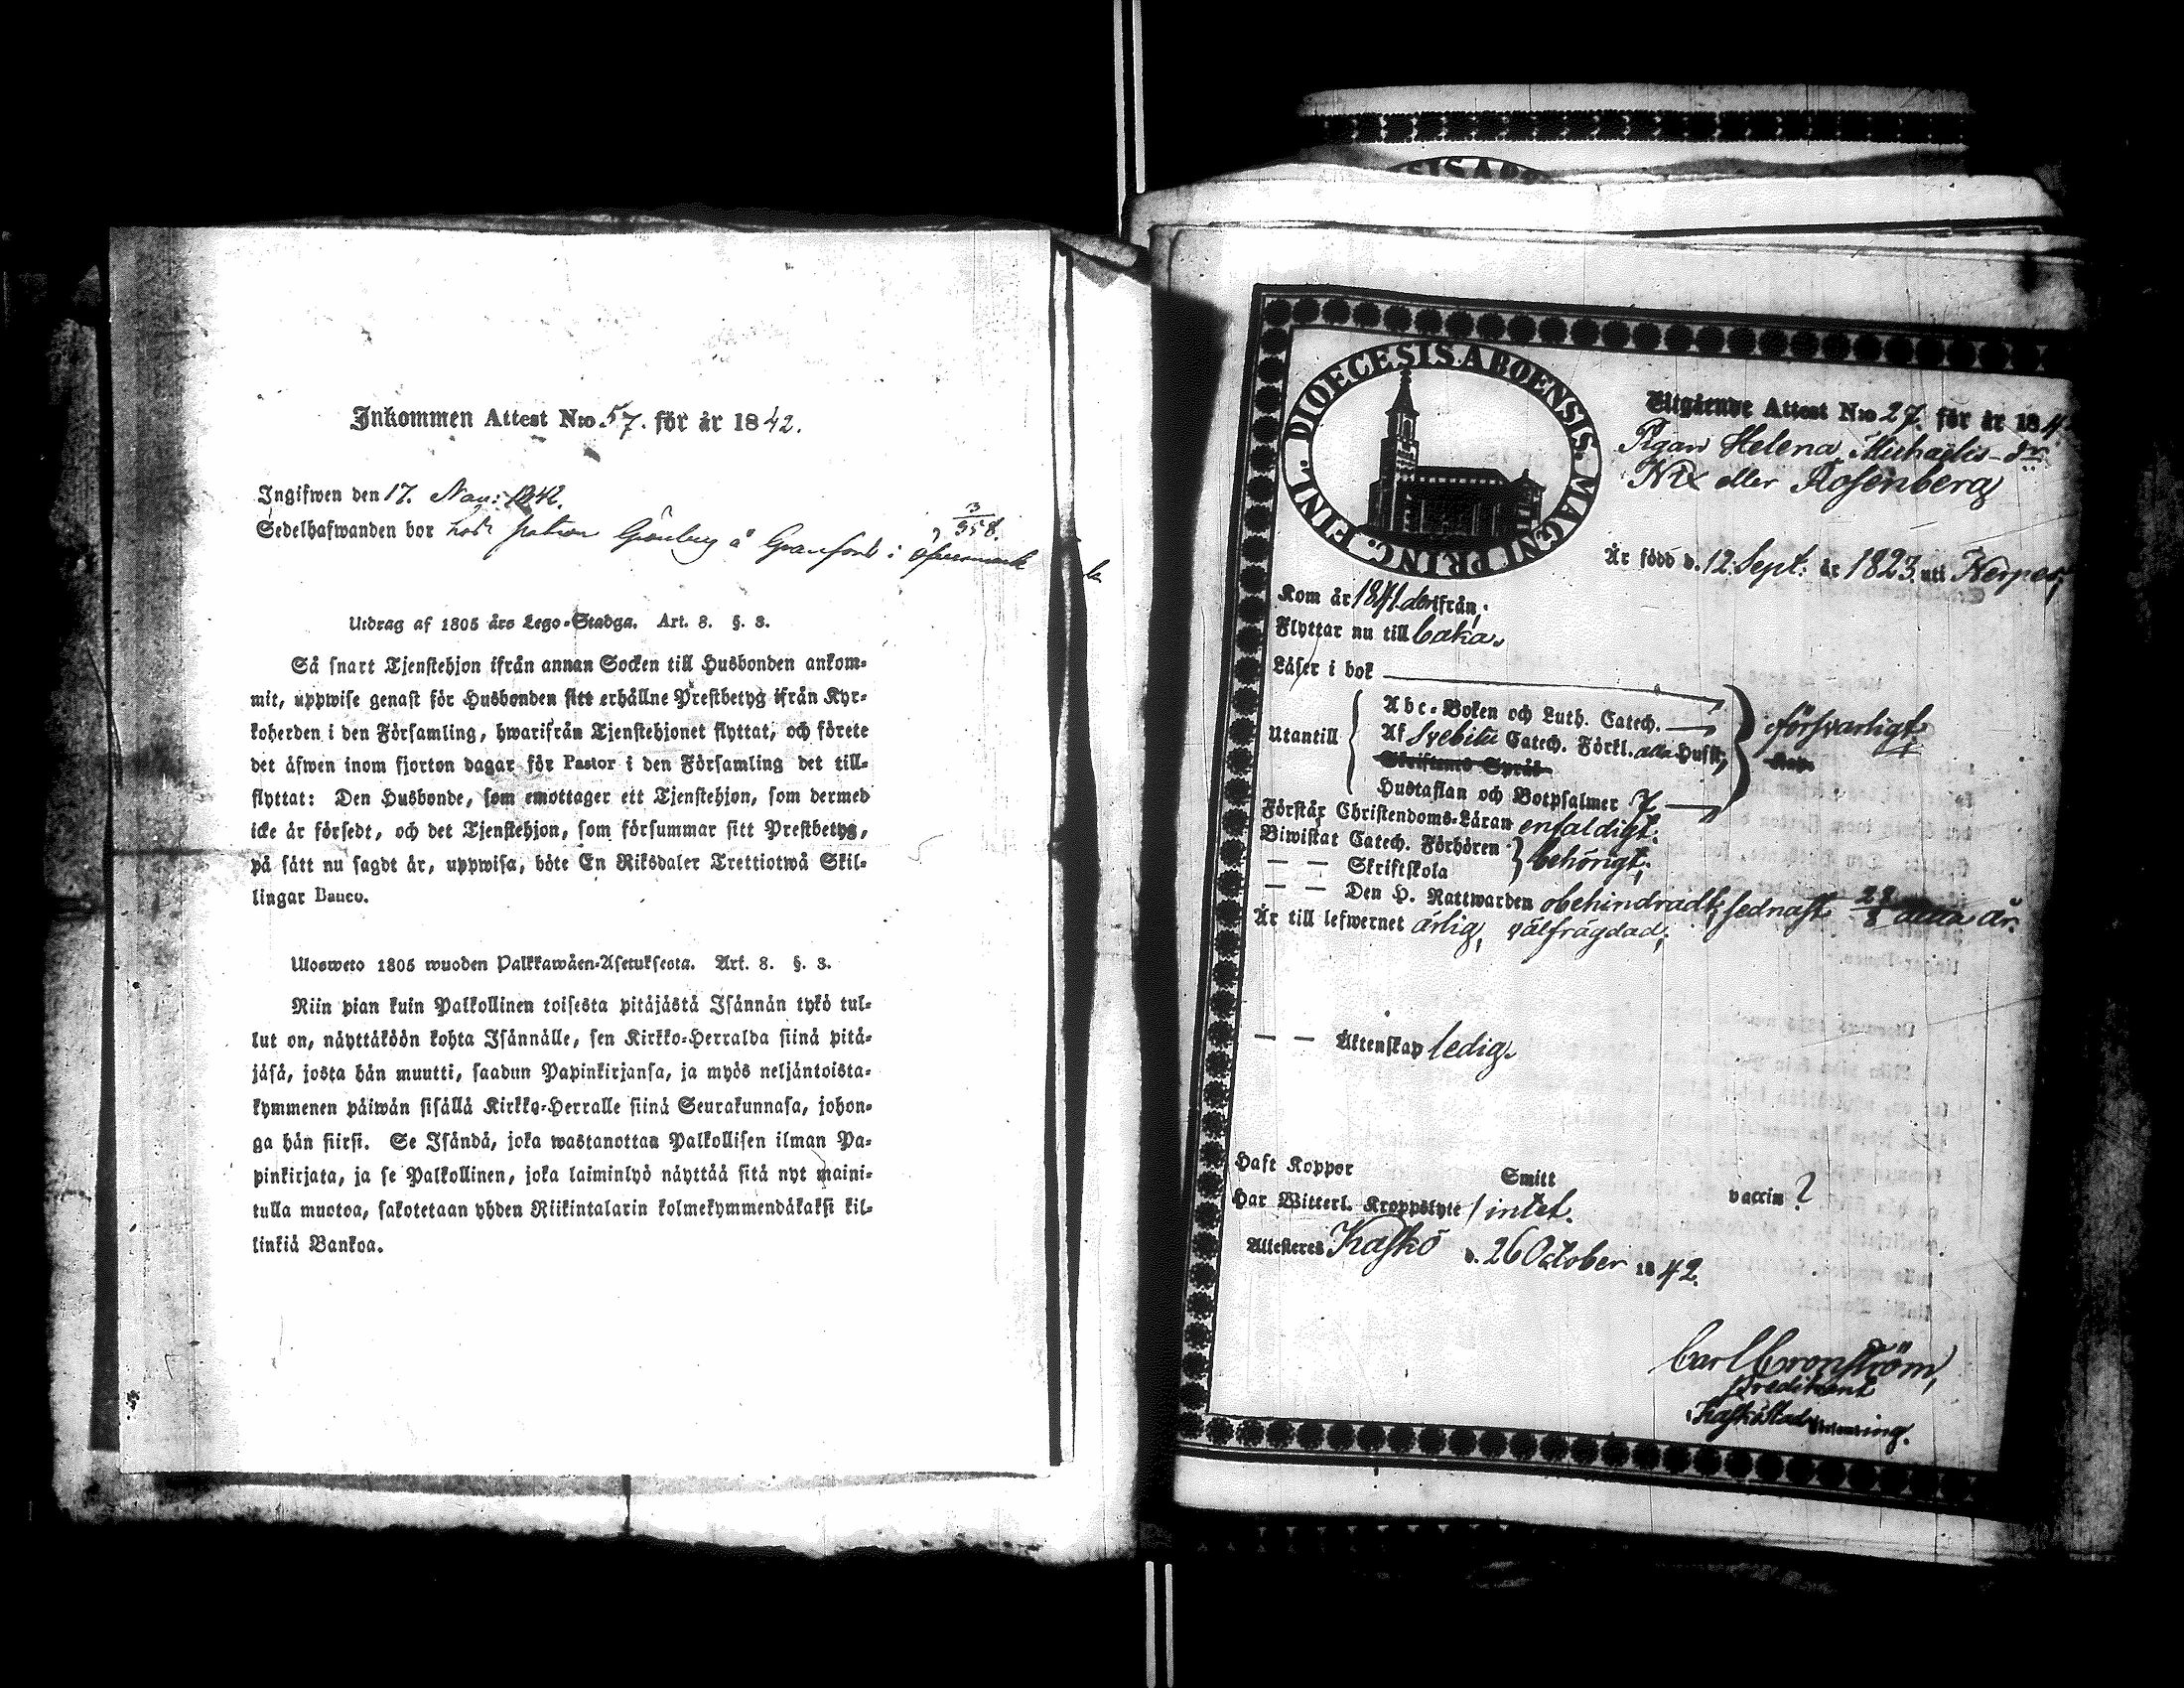 Inkommen Attest N:o 57. för år 1842.
Ingifwen den 17. Nov: 1842.
Sedelhafwanden bor hos patron Grönberg å Granfors i Öfvermark
3/958.
Utdrag af 1805 års Lego-Stadga. Art. 8. §. 3.
Så snart Tjenstehjon ifrån annan Socken till Husbonden ankom-
mit, uppwise genast för Husbonden sitt erhållne Prestbetyg ifrån Kyr-
koherden i den Församling, hwarifrån Tjenstehjonet flyttat, och förete
det äfwen inom fjorton dagar för Pastor i den Församling det till-
flyttat: Den Husbonde, som emottager ett Tjenstehjon, som dermed
icke är försedt, och det Tjenstehjon, som försummar sitt Prestbetyg,
på sätt nu sagdt är, uppwisa, böte En Riksdaler Trettiotwå Skil-
lingar Banco.
Ulosweto 1805 wuoden Palkkawäen-Asetuksesta. Art. 8. §. 3.
Niin pian kuin Palkollinen toisesta pitäjästä Isännän tykö tul-
lut on, näyttäköön kohta Isännälle, sen Kirkko-Herralda siinä pitä-
jäsä, josta hän muutti, saadun Papinkirjansa, ja myös neljäntoista-
kymmenen päiwän sisällä Kirkko-Herralle siinä Seurakunnasa, johon-
ga hän siirsi. Se Isändä, joka wastanottaa Palkollisen ilman Pa-
pinkirjata, ja se Palkollinen, joka laiminlyö näyttää sitä nyt maini-
tulla muotoa, sakotetaan yhden Riikintalarin kolmekymmendäkaksi kil-
linkiä Bankoa.
DIOECESIS ABOENSIS. MAGNI PRINC. FINL.
Utgående Attest N:o 27. för år 184
Pigan Helena Michaëlis-dr
Nix eller Rosenberg
Är född d. 12. Sept. år 1823. uti Nerpes,
Kom år 1841. derifrån;
Flyttar nu till baka.
Läser i bok
Utantill
Abc-Boken och Luth. Catech.
Af Svebilii Catech. Förkl. alla Hufst,
Skriftens Språk
Hustaflan och Botpsalmer 7
försvarligt
Förstår Christendoms-Läran enfaldigt.
Biwistat Catech. Förhören
— — Skriftskola
behörigt,
— — Den H. Nattwarden obehindradt, sednast 28/8 detta år.
Är till lefwernet ärlig, välfrägdad,
— — Äktenskap ledig.
Haft Koppor Smitt vaccin ?
Har Witterl. Kroppslyte / intet.
Attesteres Kaskö d. 26 October 1842.
Carl Cronström,
Predikant
Kaskö Stads församling.